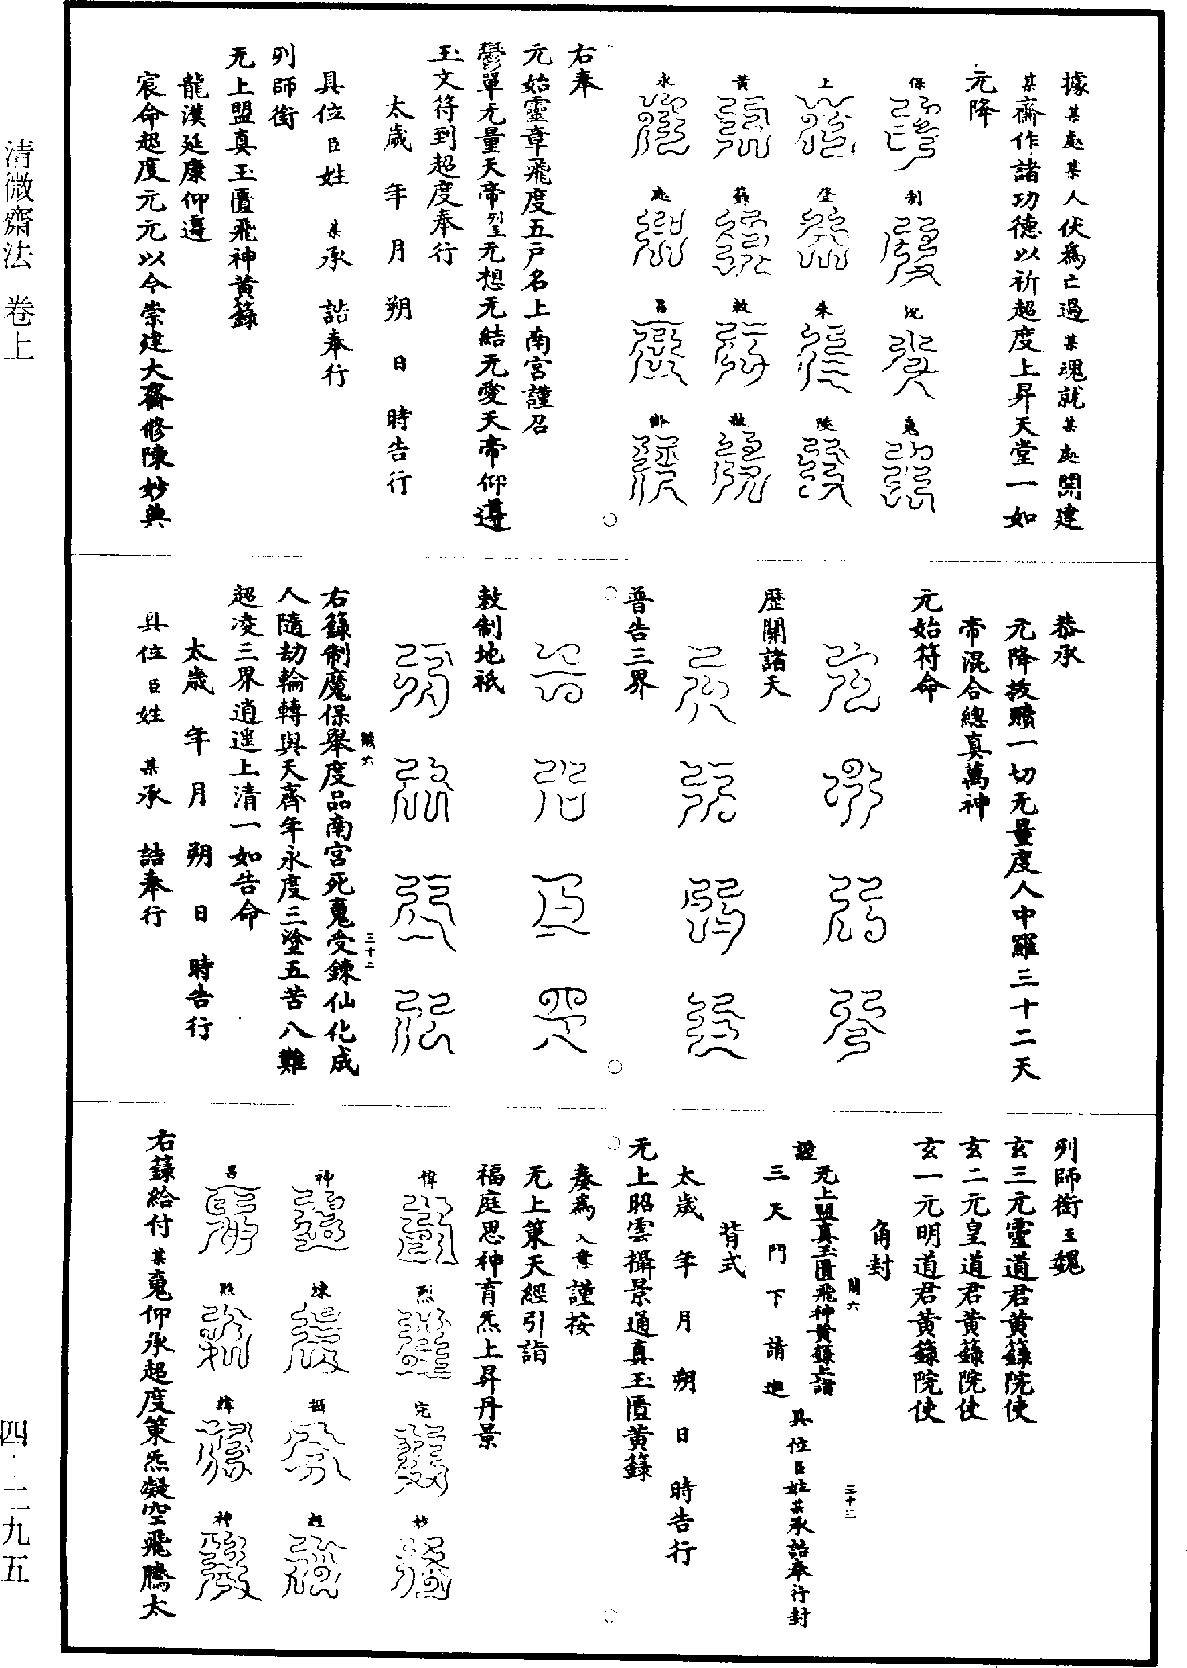 據某處某人伏為亡過某魂就某處開建
某齋作諸功德以祈超度上昇天堂一如
元降
保 制 沉 䰟
上 登 朱 陵
黃 籙 敕
永 處 昌
右奉
元始靈章飛度五戶名上南宮謹召
鬱單无量天帝列至无想无結无愛天帝仰遵
玉文符到超度奉行
太歲 年 月 朔 日 時告行
具位臣姓 某承 誥奉行
列師銜
无上盟真玉匱飛神黃籙
龍漢延康仰遵
宸命超度元元以今崇建大齋修陳妙典
恭承
元降拔贖一切无量度人中羅三十二天
帝混合總真萬神
元始符命
歷關諸天
普告三界
敕制地祇
右籙制魔保舉度品南宮死䰟受鍊仙化成
人隨劫輪轉與天齊年永度三塗五苦八難
超凌三界逍遙上清一如告命
太歲 年 月 朔 日 時告行
具位臣姓 某承 誥奉行
列師銜至魏
玄三元靈道君黃籙院使
玄二元皇道君黃籙院使
玄一元明道君黃籙院使
角封
无上盟真玉匱飛神黃籙上詣
三天門下請進 具位臣姓某承誥奉行封
背式
太歲 年 月 朔 日 時告行
无上昭雲攝景通真玉匱黃籙
奏為入意謹按
无上策天經引詣
福庭思神育炁上昇丹景
神
昌
神
右籙給付某䰟仰承超度策炁凝空飛騰太
清微齋法 卷上
四·二九五